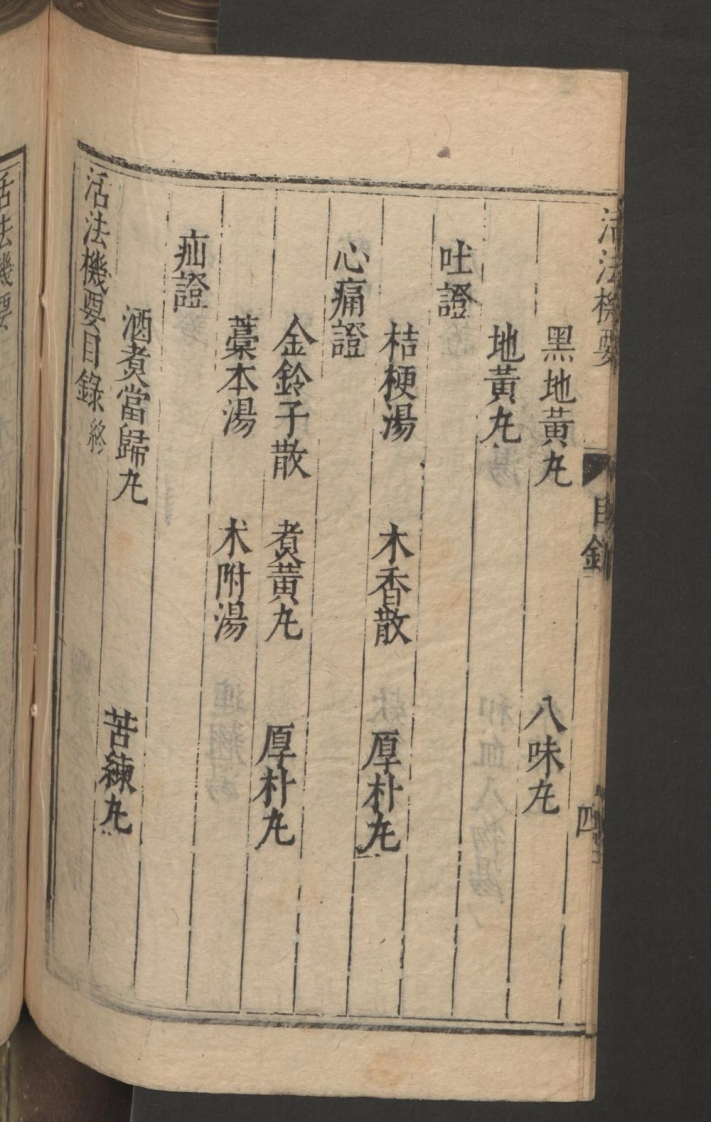 活法機要 目錄 四
黑地黃丸 八味丸
地黃丸
吐證
桔梗湯 木香散 厚朴丸
心痛證
金鈴子散 煮黃丸 厚朴丸
藁本湯 朮附湯
疝證
酒煮當歸丸 苦練丸
活法機要目錄終
活法機要